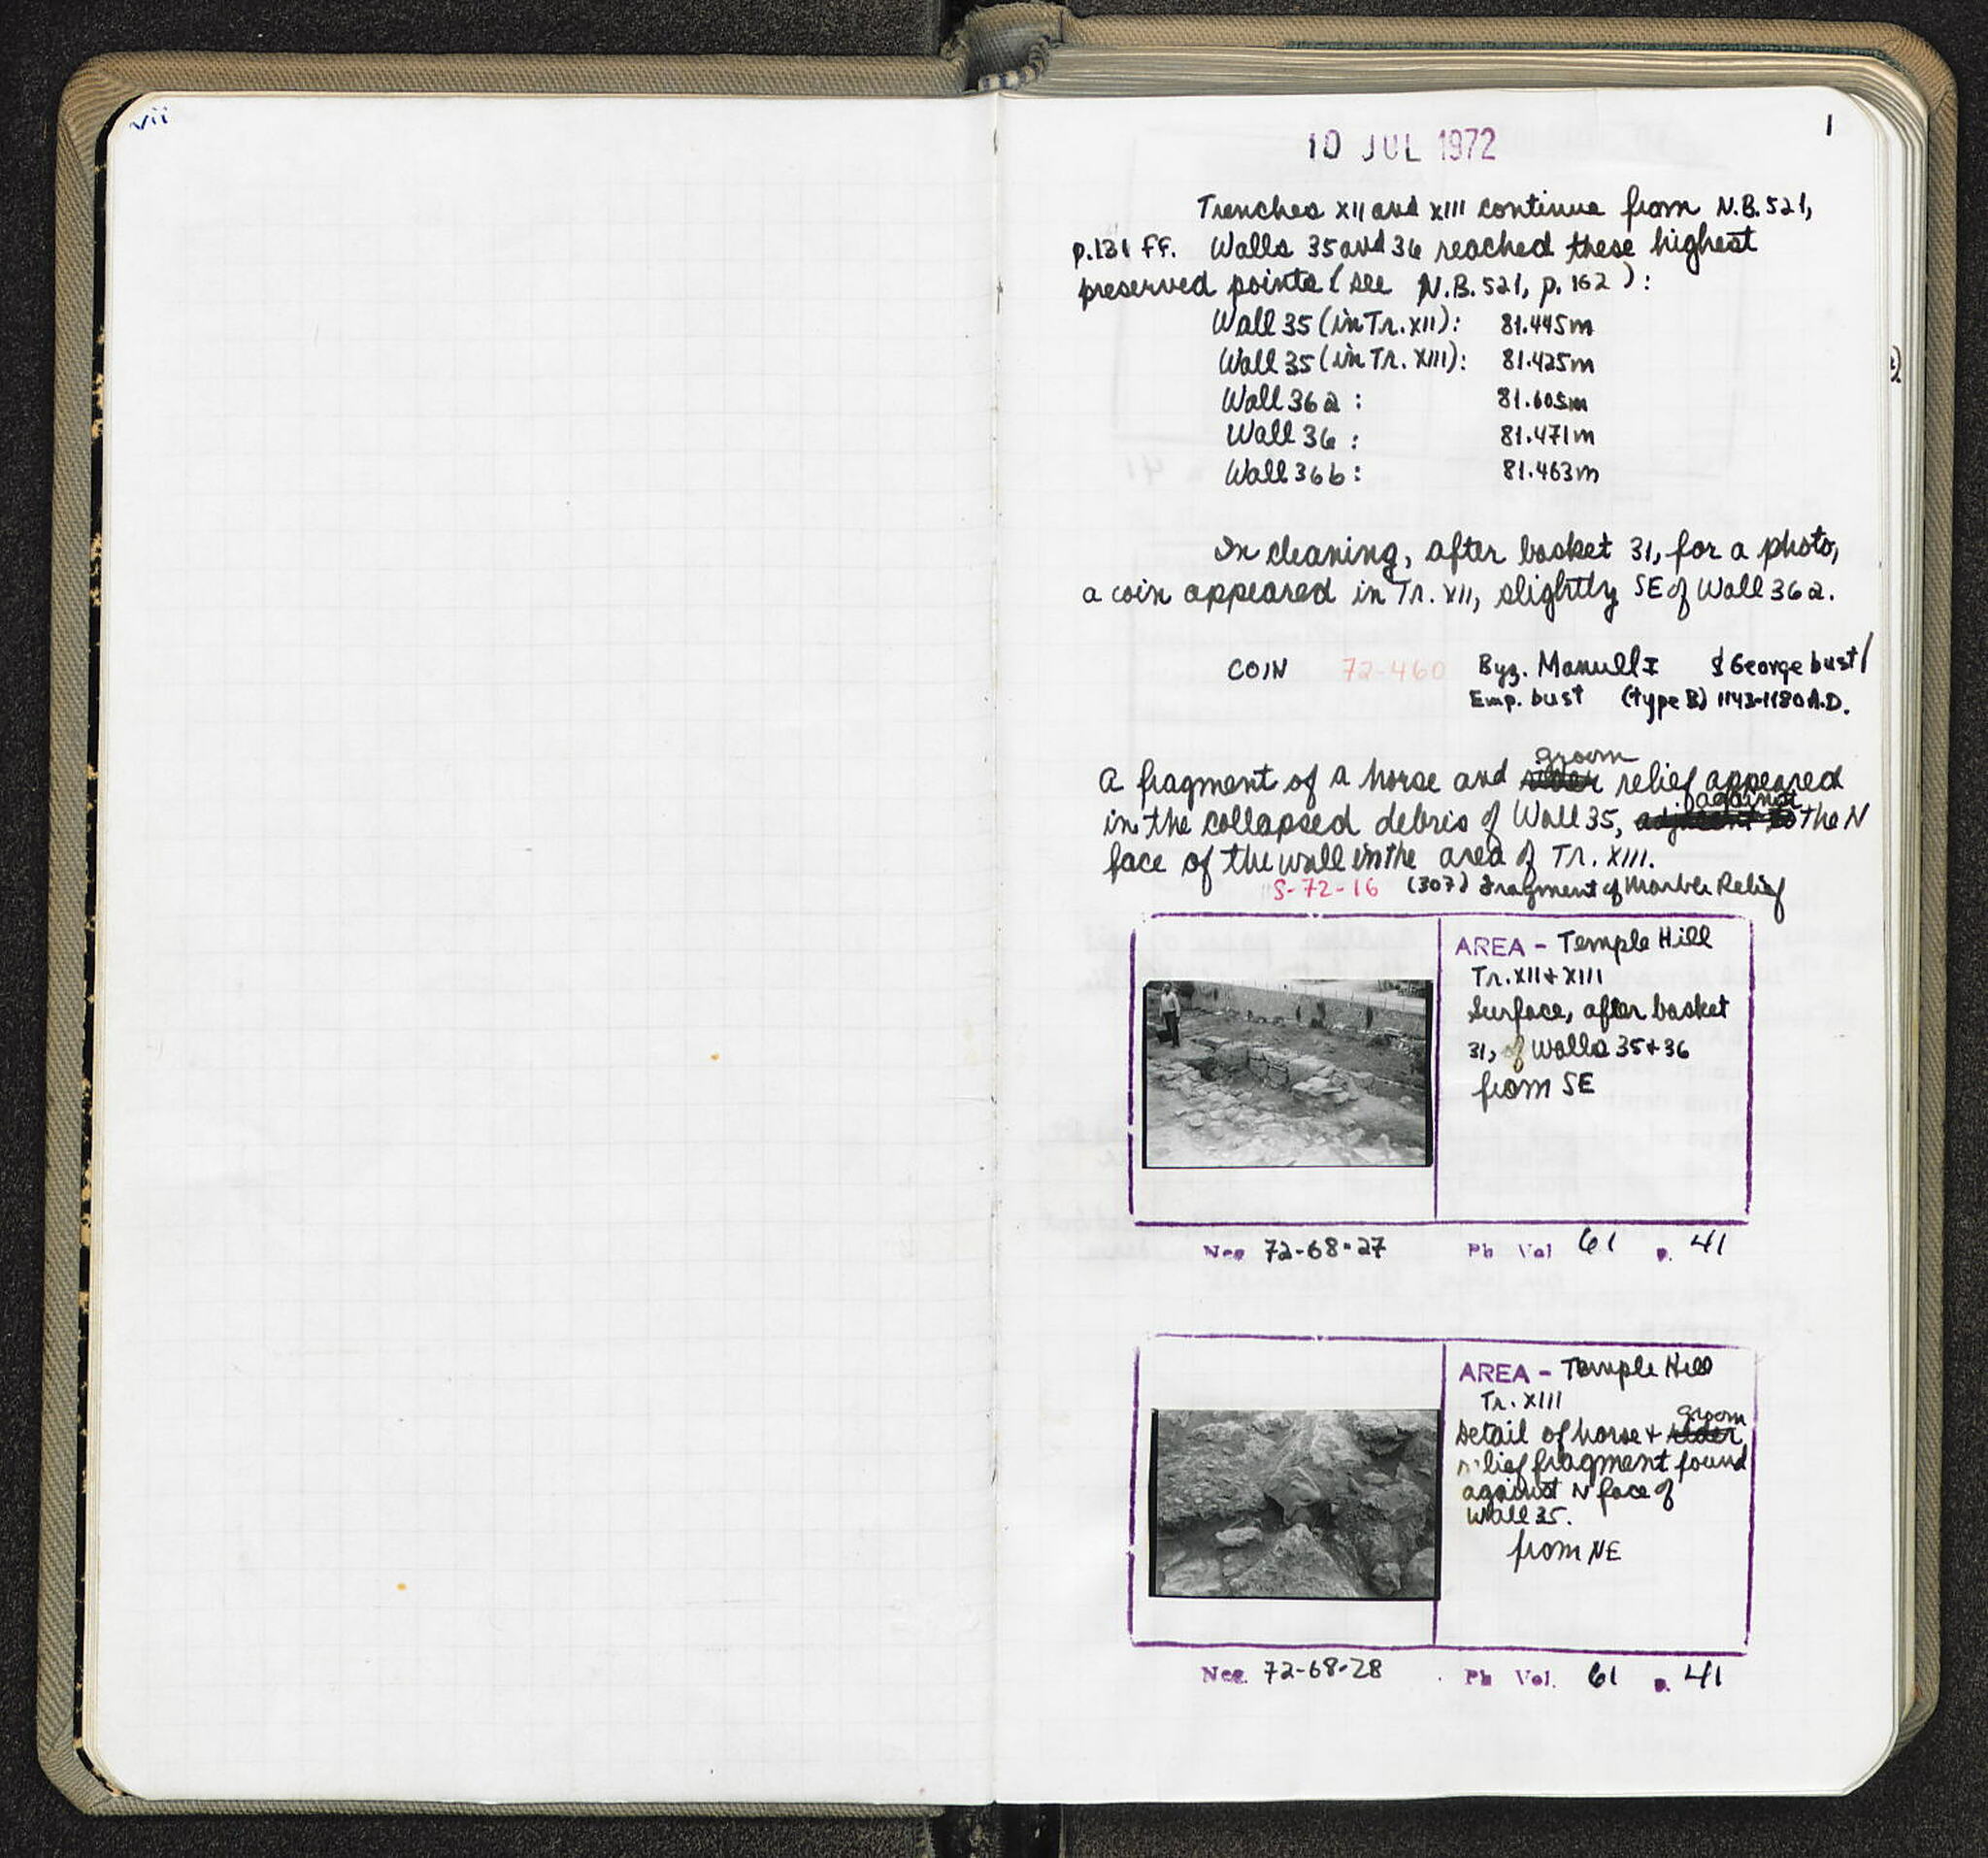 vii
1
10 JUL 1972
Trenches XII and XIII continue from N.B. 521,
p.131 ff. Walls 35 and 36 reached these highest
preserved points (see N.B. 521, p. 162):
Wall 35 (in Tr. XII): 81.445m
Wall 35 (in Tr. XIII): 81.425m
Wall 36a: 81.605m
Wall 36: 81.471m
Wall 36b: 81.463m
In cleaning, after basket 31, for a photo,
a coin appeared in Tr. XII, slightly SE of Wall 36a.
COIN 72-460 Byz. Manuel I St George bust/
Emp. bust (type B) 1143-1180 A.D.
groom
A fragment of a horse and rider relief appeared
against
in the collapsed debris of Wall 35, adjacent to the N
face of the wall in the area of Tr. XIII.
S-72-16 (307) Fragment of Marble Relief
AREA - Temple Hill
Tr. XII + XIII
Surface, after basket
31, of walls 35 + 36
from SE
Neg 72-68-27 Ph Vol 61 p. 41
AREA - Temple Hill
Tr. XIII
groom
Detail of horse + rider
relief fragment found
against N face of
Wall 35.
from NE
Neg. 72-68-28 Ph Vol. 61 p. 41